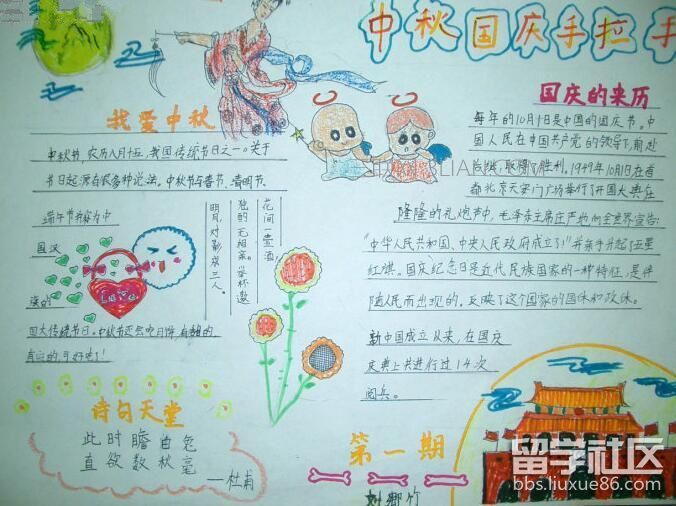 中秋国庆手拉手
我爱中秋
中秋节,农历八月十五,我国传统节日之一。关于
节日起源有很多种说法。中秋节与春节、清明节、
端午节并称为中
国汉
族的
四大传统节日。中秋节还会吃月饼,
真的可好吃了!
花间一壶酒,
独酌无相亲。举杯邀
明月,对影成三人。
Love
诗句天堂
此时瞻白兔
直欲数秋毫
——杜甫
国庆的来历
每年的10月1日是中国的国庆节。中
国人民在中国共产党的领导下,前赴
后继,取得了胜利。1949年10月1日在首
都北京天安门广场举行了开国大典在
隆隆的礼炮声中,毛泽东主席庄严地向全世界宣告:
“中华人民共和国、中央人民政府成立了!”并亲手升起了五星
红旗。国庆纪念日是近代民族国家的一种特征,是伴
随人民而出现的。反映了这个国家的国体和政体。
新中国成立以来,在国庆
庆典上共进行过14次
阅兵。
第一期
刘卿竹
留学社区
bbs.liuxue86.com